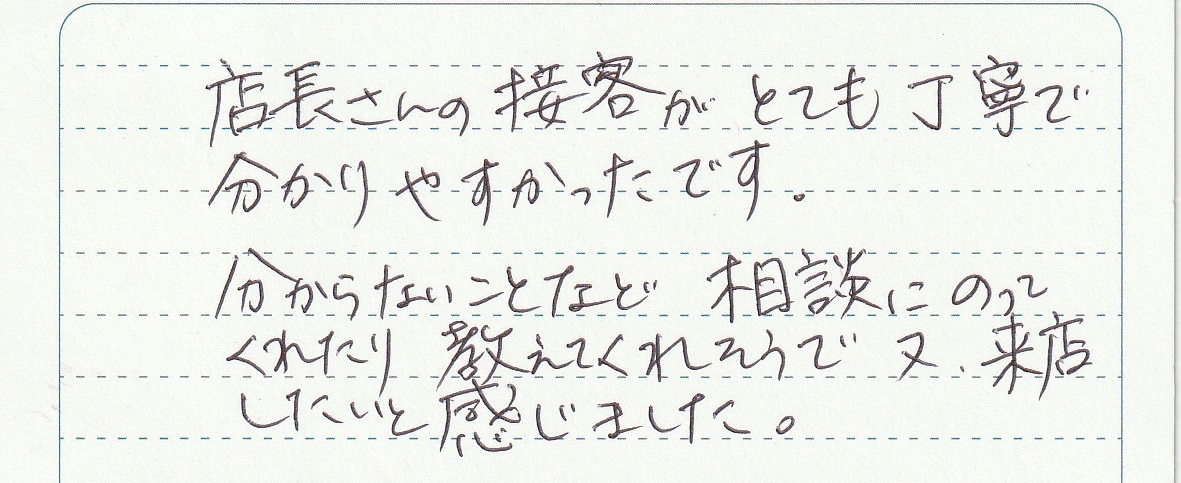 店長さんの接客がとても丁寧で
分かりやすかったです。
分からないことなど 相談にのって
くれたり 教えてくれそうで 又、来店
したいと感じました。